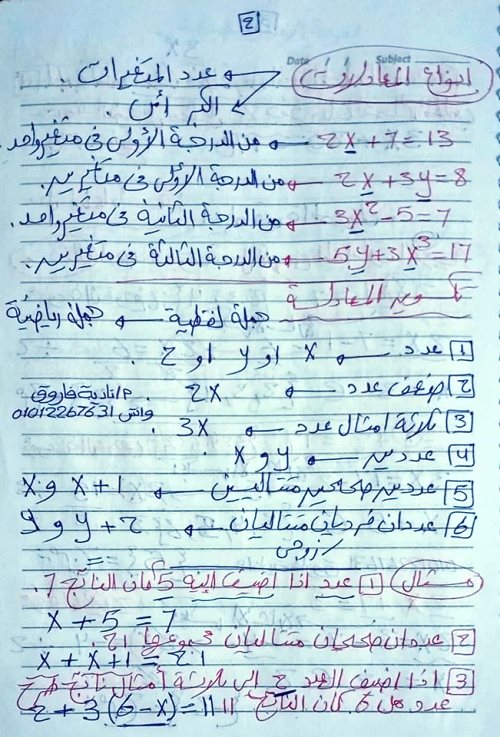 2
Date / / Subject
انواع المعادلات ← عدد المتغيرات.
← اكبر أس.
2x + 7 = 13 ← من الدرجة الأولى فى متغير واحد.
2x + 3y = 8 ← من الدرجة الأولى فى متغيرين.
3x² - 5 = 7 ← من الدرجة الثانية فى متغير واحد.
5y + 3x³ = 17 ← من الدرجة الثالثة فى متغيرين.
تكوين المعادلة
جملة لفظية ← جملة رياضية
1 عدد ← x او y او z.
2 ضعف عدد ← 2x
م/نادية فاروق
واتس 01012267631
3 ثلاثة امثال عدد ← 3x.
4 عددين ← y و x.
5 عددين صحيحين متتاليين ← x+1 و x
6 عددان فرديان متتاليان ← y+2 و y
زوجى
مثال 1 عدد اذا اضيف اليه 5 كان الناتج 7.
x + 5 = 7
2 عددان صحيحان متتاليان مجموعها 21.
x + x + 1 = 21
3 اذا اضيف العدد 2 الى ثلاثة أمثال ناتج طرح
عدد من 6 كان الناتج 11 2 + 3(6-x) = 11